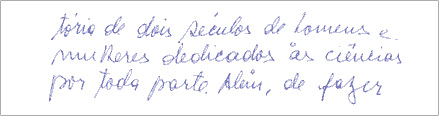 tória de dois séculos de homens e
mulheres dedicados às ciências
por toda parte. Além, de fazer